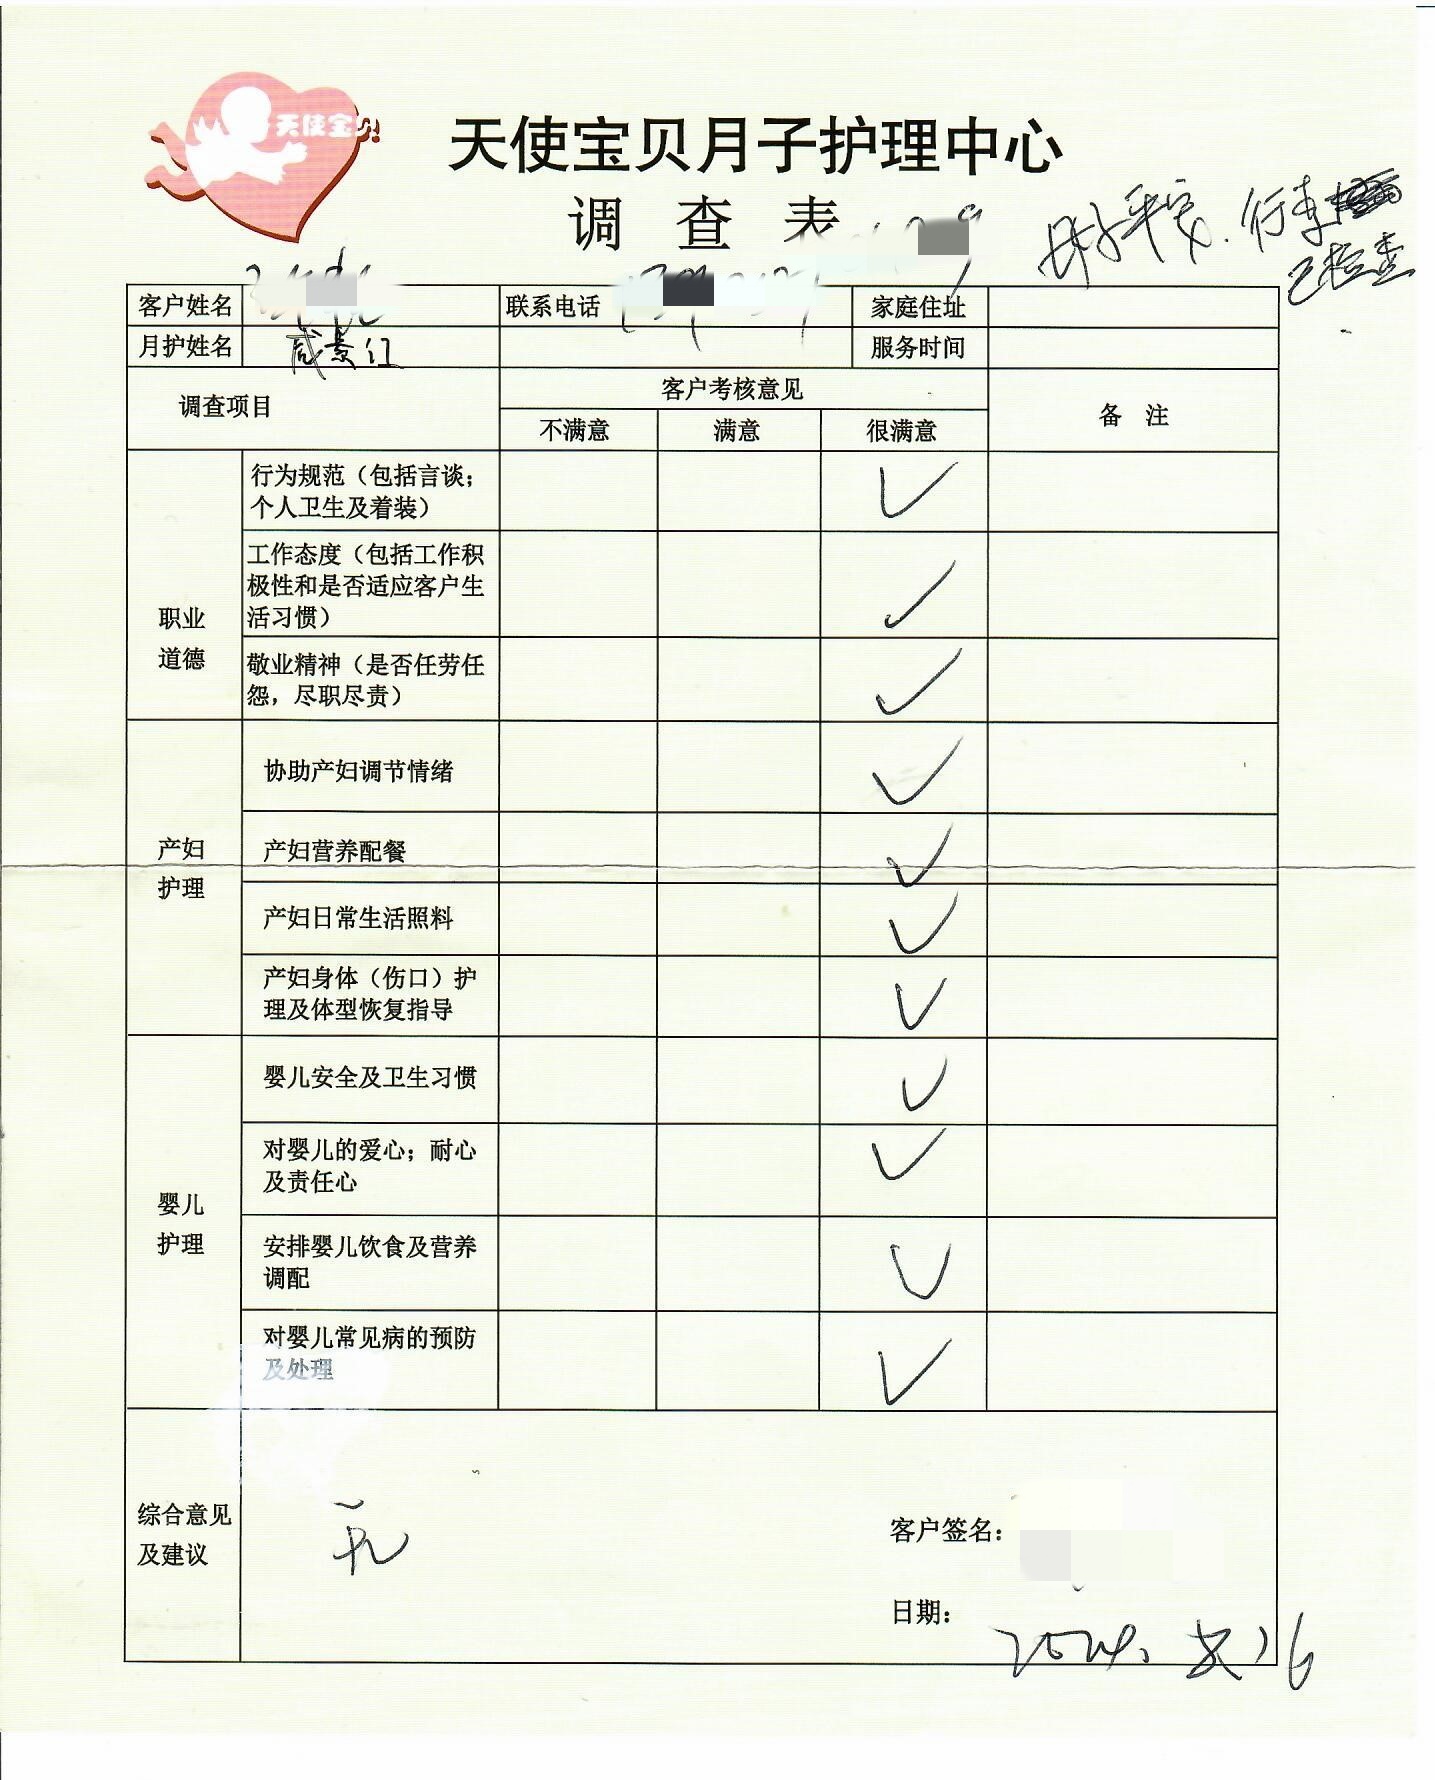 天使宝贝
天使宝贝月子护理中心
调 查 表
母子平安. 行李
已检查
客户姓名 联系电话 家庭住址
月护姓名 咸景红 服务时间
调查项目 客户考核意见 备 注
不满意 满意 很满意
职业
道德
行为规范（包括言谈；
个人卫生及着装）
工作态度（包括工作积
极性和是否适应客户生
活习惯）
敬业精神（是否任劳任
怨，尽职尽责）
产妇
护理
协助产妇调节情绪
产妇营养配餐
产妇日常生活照料
产妇身体（伤口）护
理及体型恢复指导
婴儿
护理
婴儿安全及卫生习惯
对婴儿的爱心；耐心
及责任心
安排婴儿饮食及营养
调配
对婴儿常见病的预防
及处理
综合意见
及建议
无
客户签名：
日期：
2024.